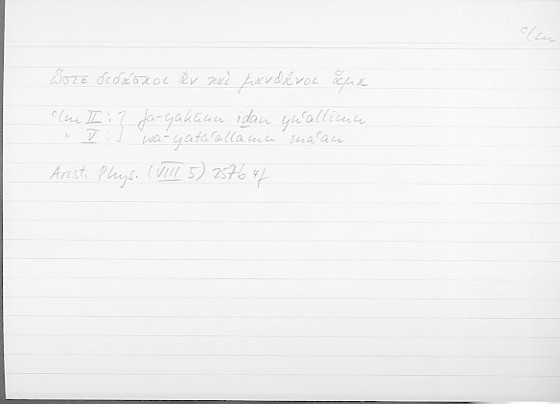 ʿlm
ὥστε διδάσκοι ἂν καὶ μανθάνοι ἅμα
ʿlm II : } fa-yakūnu iḏan yuʿallimu
" V : } wa-yataʿallamu maʿan
Arist. Phys. (VIII 5) 257b 4f